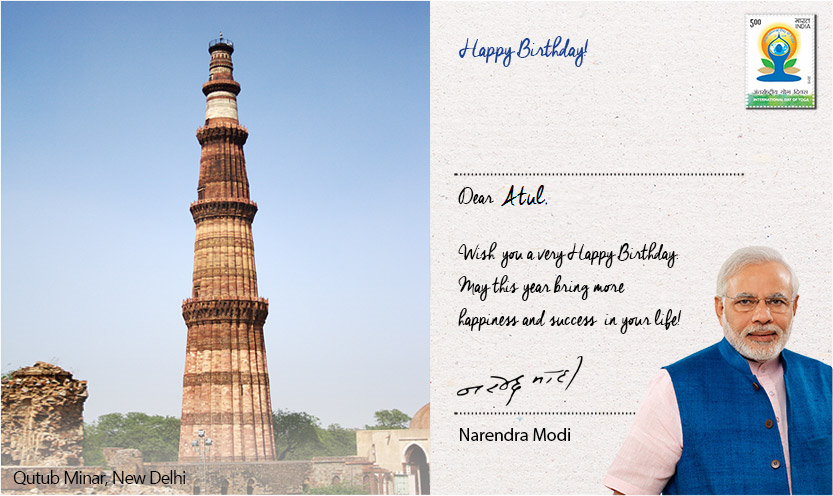 Happy Birthday!
5.00
भारत
INDIA
अंतर्राष्ट्रीय योग दिवस
INTERNATIONAL DAY OF YOGA
Dear Atul,
Wish you a very Happy Birthday.
May this year bring more
happiness and success in your life!
नरेन्द्र मोदी
Narendra Modi
Qutub Minar, New Delhi